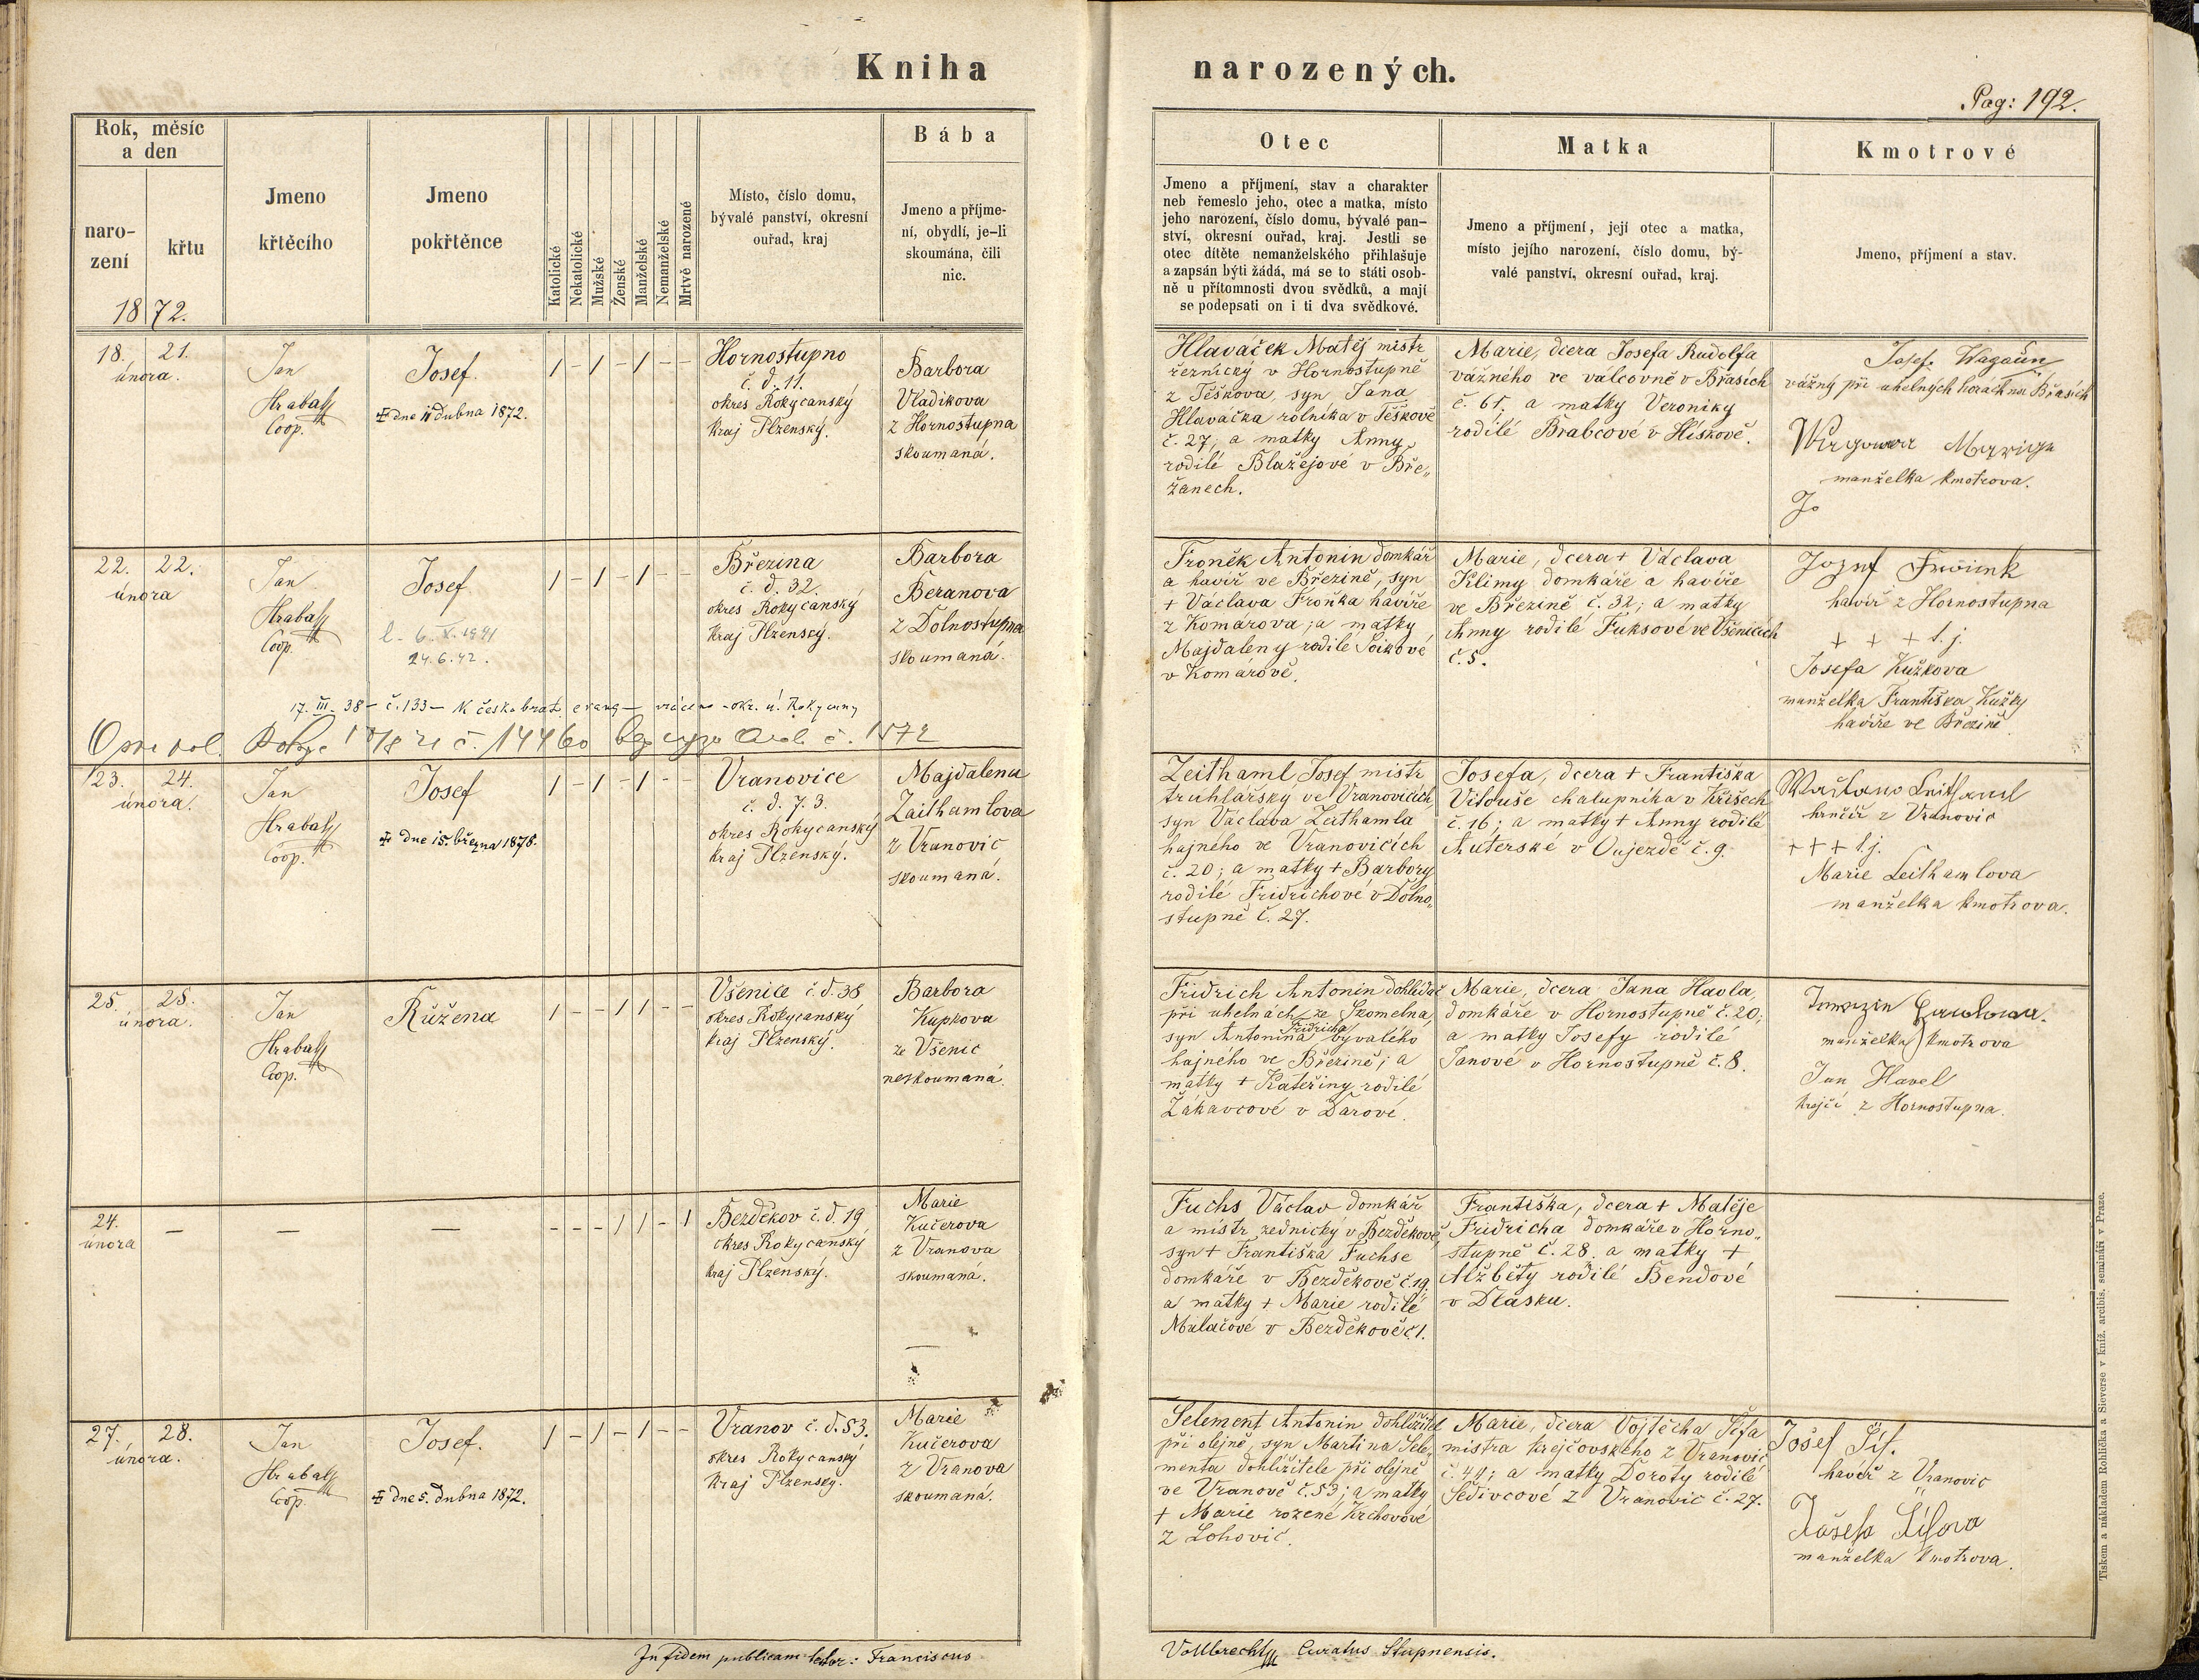 Kniha
narozených.
Pag: 192.
Rok, měsíc
a den
naro-
zení
křtu
1872.
Jmeno
křtěcího
Jmeno
pokřtěnce
Katolické
Nekatolické
Mužské
Ženské
Manželské
Nemanželské
Mrtvě narozené
Místo, číslo domu,
bývalé panství, okresní
ouřad, kraj
Bába
Jmeno a příjme-
ní, obydlí, je-li
skoumána, čili
nic.
Otec
Jmeno a příjmení, stav a charakter
neb řemeslo jeho, otec a matka, místo
jeho narození, číslo domu, bývalé pan-
ství, okresní ouřad, kraj. Jestli se
otec dítěte nemanželského přihlašuje
a zapsán býti žádá, má se to státi osob-
ně u přítomnosti dvou svědků, a mají
se podepsati on i ti dva svědkové.
Matka
Jmeno a příjmení, její otec a matka,
místo jejího narození, číslo domu, bý-
valé panství, okresní ouřad, kraj.
Kmotrové
Jmeno, příjmení a stav.
18. 21.
února.
Jan
Hrabák
Coop.
Josef.
dne 11 dubna 1872.
1 - 1 - 1 - -
Hornostupno
č. d. 11.
okres Rokycanský
Kraj Plzenský.
Barbora
Vladikova
z Hornostupna
skoumaná.
Hlaváček Matěj mistr
řeznický v Hornostupně
z Těškova, syn Jana
Hlaváčka rolníka v Těškově
č. 27; a matky Anny
rodilé Blažejové v Bře„
žanech.
Marie, dcera Josefa Rudolfa
vážného ve válcovně v Břasích
č. 61; a matky Veroniky
rodilé Brabcové v Hískově.
Josef Wagaün
vážný při uhelných horách na Břasích
manželka kmotrova.
Jo
22. 22.
února
Jan
Hrabák
Coop.
Josef
24.6.42.
1 - 1 - 1 - -
Březina
č. d. 32.
okres Rokycanský
Kraj Plzenský.
Barbora
Beranova
z Dolnostupna
skoumaná.
Froněk Antonin domkář
a havíř ve Březině, syn
+ Václava Froňka havíře
z Komárova; a matky
Majdaleny rodilé
v Komárově.
Marie, dcera + Václava
Klimy domkáře a havíře
ve Březině č. 32; a matky
Anny rodilé Fuksové ve Všenicích
č. 5.
Jozef
havíř z Hornostupna
+ + + t. j.
Josefa Kužkova
manželka Františka Kužky
havíře ve Březině.
17. III. 38 - č. 133 -
23. 24.
února.
Jan
Hrabák
Coop.
Josef
dne 15. března 1878.
1 - 1 - 1 - -
Vranovice
č. d. 73.
okres Rokycanský
Kraj Plzenský.
Majdalena
Zaithamlova
z Vranovic
skoumaná.
Zeithaml Josef mistr
truhlářský ve Vranovicích,
syn Václava Zeithamla
hajného ve Vranovicích
č. 20; a matky + Barbory
rodilé Fridrichové v Dolno„
stupně č. 27.
Josefa, dcera + Františka
Vitouše chalupníka v Křišech
č. 16; a matky + Anny rodilé
Auterské v Oujezdě č. 9.
hrnčíř z Vranovic
+ + + t. j.
Marie Leithamlova
manželka kmotrova.
25. 25.
února.
Jan
Hrabák
Coop.
Růžena
1 - - 1 1 - -
Všenice č. d. 38
okres Rokycanský
kraj Plzenský.
Barbora
Kupkova
ze Všenic
neskoumaná.
Fridrich Antonin dohlídač
při uhelnách ze Skomelna,
syn Antonina Fridricha bývalého
hajného ve Březině; a
matky + Kateřiny rodilé
Žákavcové v Darové.
Marie, dcera Jana Havla,
domkáře v Hornostupně č. 20;
a matky Josefy rodilé
Janové v Hornostupně č. 8.
manželka kmotrova
Jan Havel
krejčí z Hornostupna.
24.
února
— — —
- - - 1 1 - 1
Bezděkov č. d. 19
okres Rokycanský
kraj Plzenský.
Marie
Kučerova
z Vranova
skoumaná.
Fuchs Václav domkář
a mistr zednický v Bezděkově,
syn + Františka Fuchse
domkáře v Bezděkově č. 19;
a matky + Marie rodilé
Mulačové v Bezděkově č 1.
Františka, dcera + Matěje
Fridricha domkáře v Horno„
stupně č. 28. a matky +
Alžběty rodilé Bendové
v Dlasku.
27. 28.
února.
Jan
Hrabák
Coop.
Josef.
dne 5. dubna 1872.
1 - 1 - 1 - -
Vranov č. d. 53.
okres Rokycanský
Kraj Plzenský.
Marie
Kučerova
z Vranova
skoumaná.
Selement Antonin, dohlížitel
při olejně, syn Martina Sele„
menta dohlížitele při olejně
ve Vranově č. 53; a matky
+ Marie rozené Krchovové
z Lohovic.
Marie, dcera Vojtěcha Šífa
mistra krejčovského z Vranovic
č. 44; a matky Doroty rodilé
Šedivcové z Vranovic č. 27.
Jošef Šíf.
havíř z Vranovic
Jošefa Šífova
manželka kmotrova.
In fidem publicam Franciscus
Vollbrecht Curatus Stupnensis.
Tiskem a nákladem Rohlíčka a Sieverse v kníž. arcibis. semináři v Praze.